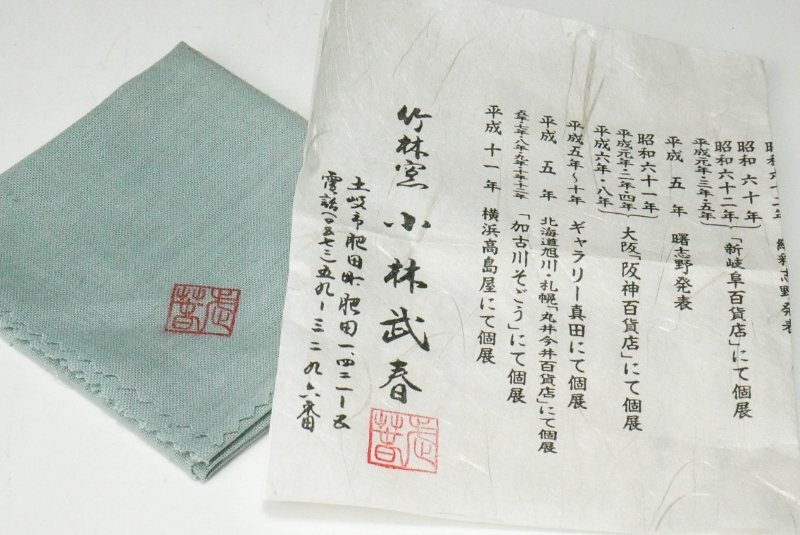 昭和六十年
昭和六十二年
平成元年・三年・五年
「新岐阜百貨店」にて個展
平成五年
曙志野発表
昭和六十一年
平成元年・二年・四年
平成六年・八年
大阪「阪神百貨店」にて個展
平成五年〜十年
ギャラリー真田にて個展
平成五年
北海道旭川・札幌「丸井今井百貨店」にて個展
「加古川そごう」にて個展
平成十一年
横浜高島屋にて個展
竹林窯 小林武春
土岐市肥田町肥田一、四二一ー五
電話(〇五七二)五九ー三二九六番